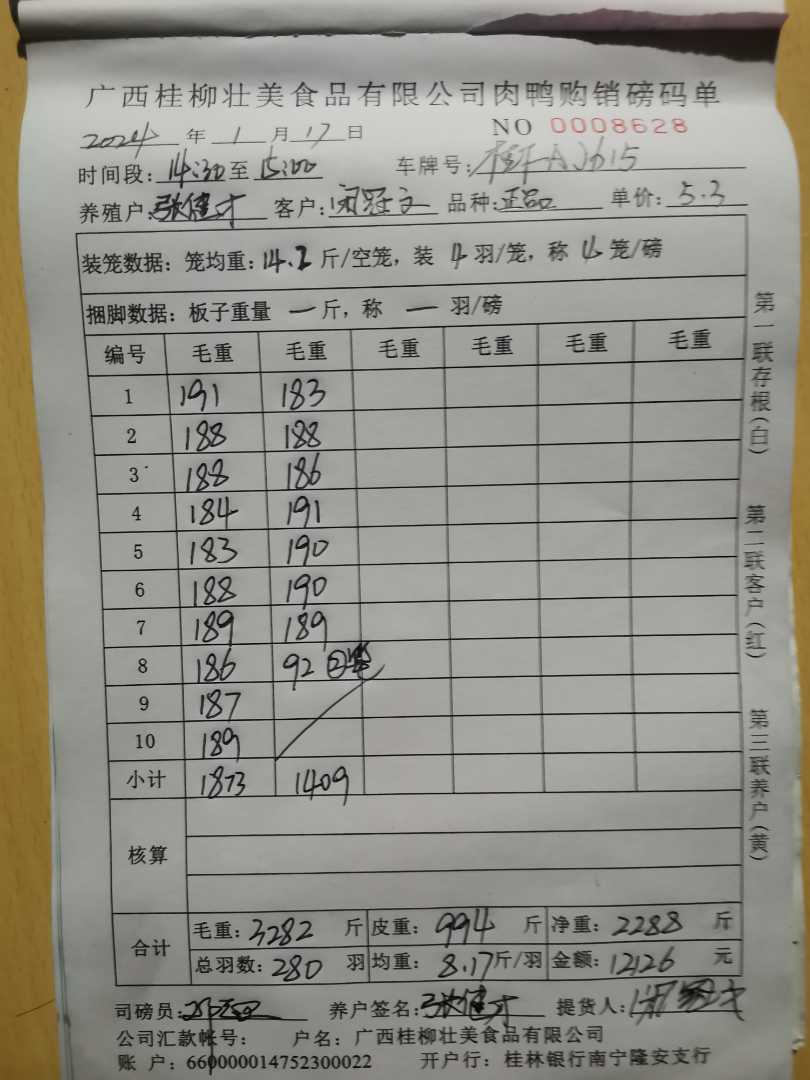 广西桂柳壮美食品有限公司肉鸭购销磅码单
2024年1月17日 NO 0008628
时间段:14:30至15:00 车牌号:
养殖户:张健才 客户: 品种:正品 单价:5.3
装笼数据:笼均重:14.2斤/空笼,装4羽/笼,称4笼/磅
捆脚数据:板子重量 一斤,称 一 羽/磅
编号 毛重 毛重 毛重 毛重 毛重 毛重
1 191 183
2 188 188
3 188 186
4 184 191
5 183 190
6 188 190
7 189 189
8 186 92 ②笼
9 187
10 189
小计 1873 1409
核算
合计 毛重:3282斤 皮重:994斤 净重:2288斤
总羽数:280羽 均重:8.17斤/羽 金额:12126元
司磅员: 养户签名:张健才 提货人:
公司汇款帐号: 户名:广西桂柳壮美食品有限公司
账 户:660000014752300022 开户行:桂林银行南宁隆安支行
第一联存根(白)
第二联客户(红)
第三联养户(黄)